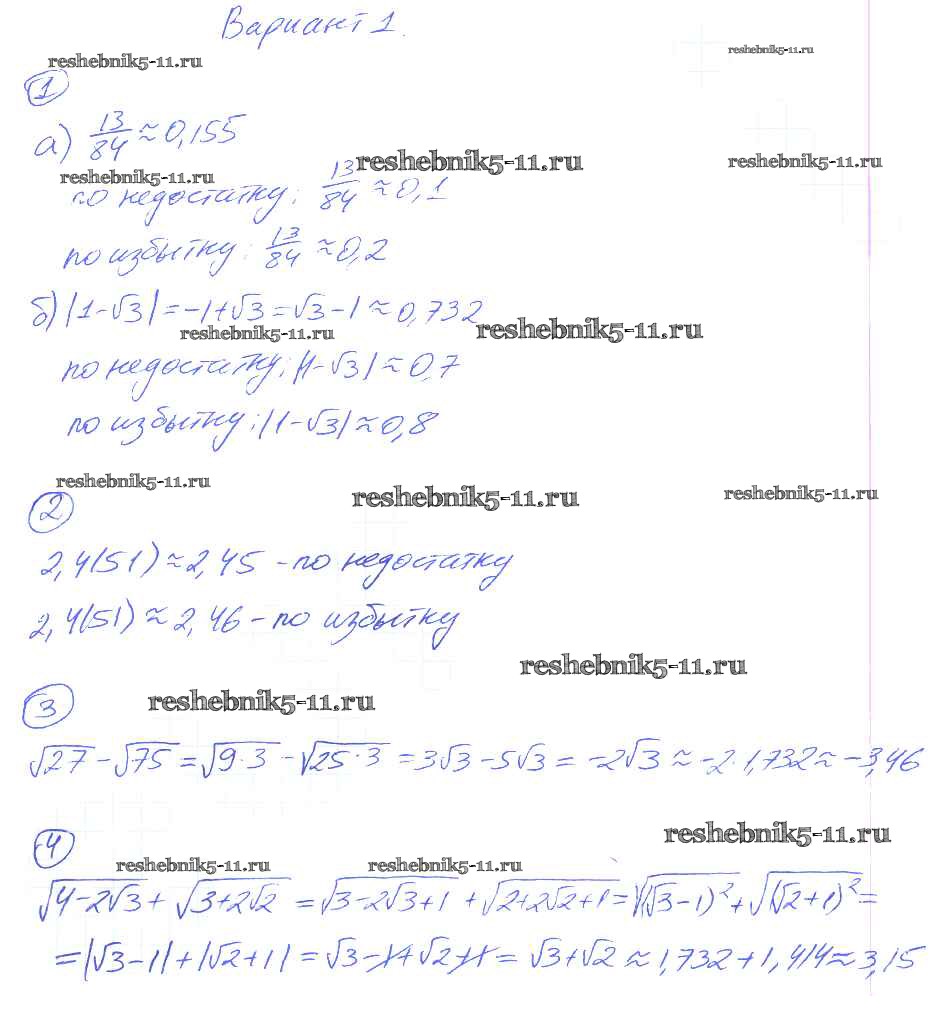 Вариант 1.
reshebnik5-11.ru
reshebnik5-11.ru
1
а) 13/84 ≈ 0,155
reshebnik5-11.ru
reshebnik5-11.ru
reshebnik5-11.ru
по недостатку: 13/84 ≈ 0,1
по избытку: 13/84 ≈ 0,2
б) |1-√3| = -1+√3 = √3-1 ≈ 0,732
reshebnik5-11.ru
reshebnik5-11.ru
по недостатку: |1-√3| ≈ 0,7
по избытку: |1-√3| ≈ 0,8
reshebnik5-11.ru
reshebnik5-11.ru
reshebnik5-11.ru
2
2,4(51) ≈ 2,45 - по недостатку
2,4(51) ≈ 2,46 - по избытку
reshebnik5-11.ru
3
reshebnik5-11.ru
√27 - √75 = √9·3 - √25·3 = 3√3 - 5√3 = -2√3 ≈ -2·1,732 ≈ -3,46
4
reshebnik5-11.ru
reshebnik5-11.ru
reshebnik5-11.ru
√4-2√3 + √3+2√2 = √3-2√3+1 + √2+2√2+1 = √(√3-1)² + √(√2+1)² =
= |√3-1| + |√2+1| = √3-1+√2+1 = √3+√2 ≈ 1,732+1,414 ≈ 3,15